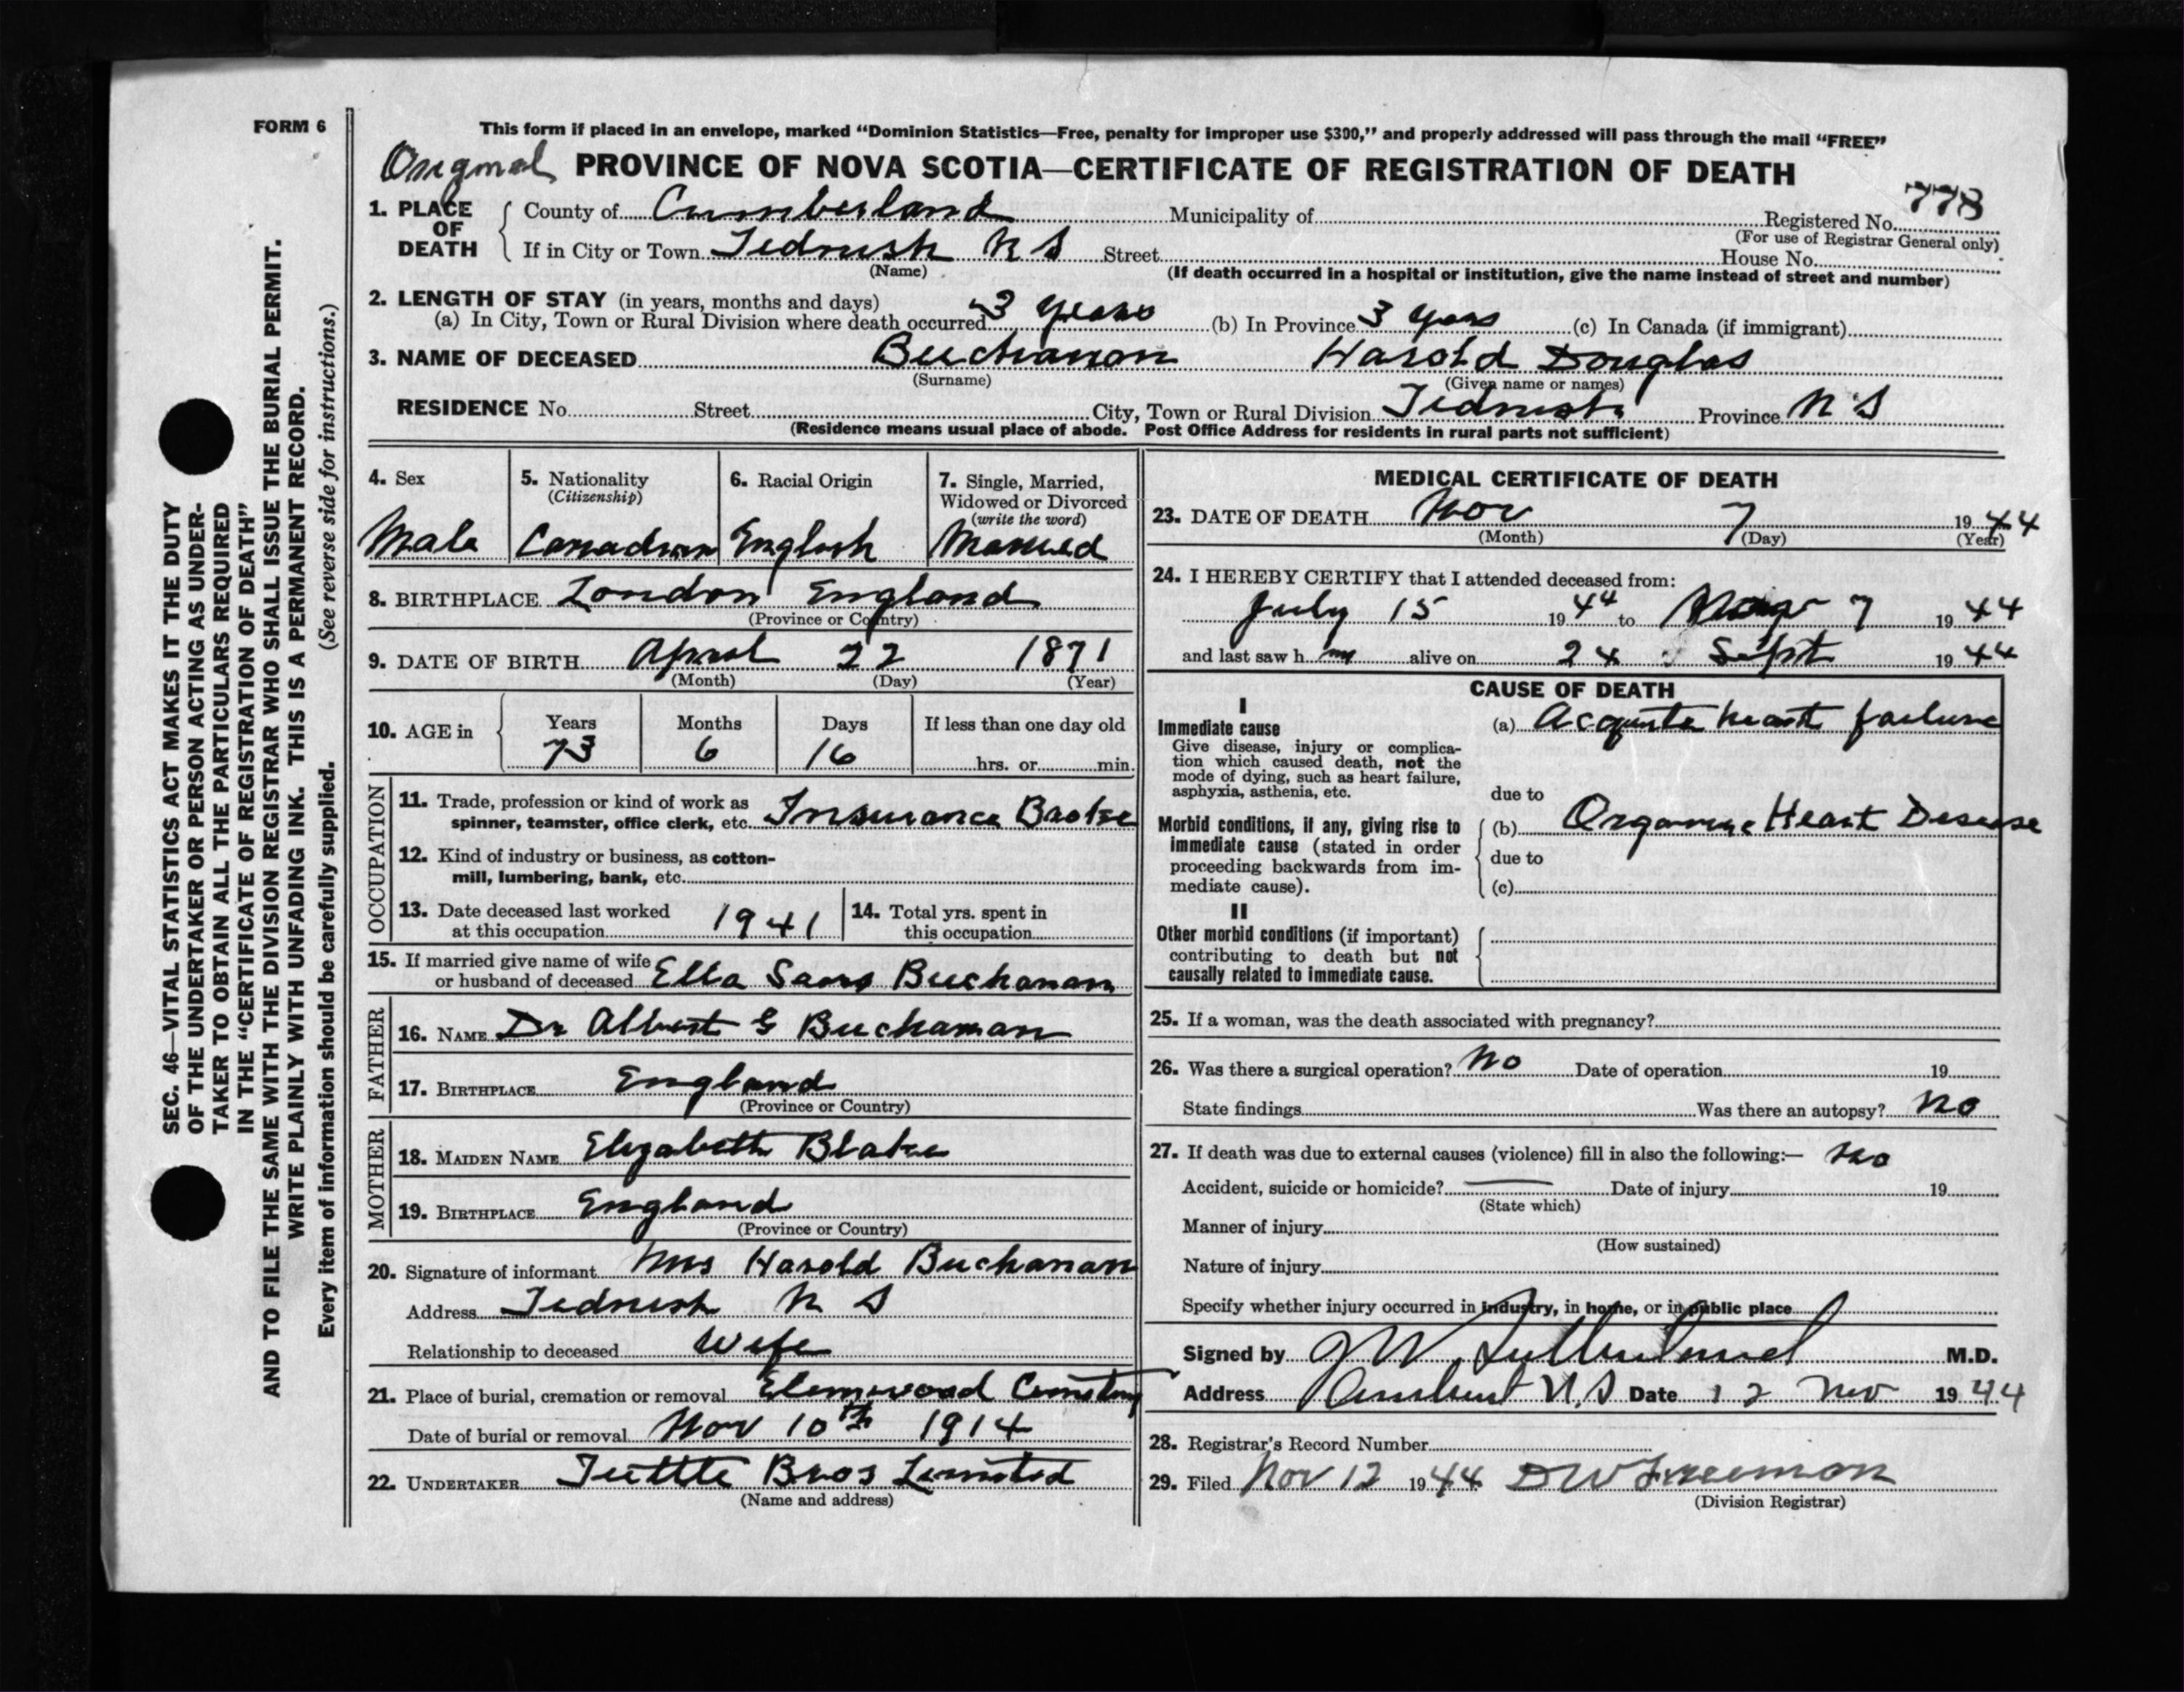 FORM 6
This form if placed in an envelope, marked “Dominion Statistics—Free, penalty for improper use $300,” and properly addressed will pass through the mail “FREE”
Original PROVINCE OF NOVA SCOTIA—CERTIFICATE OF REGISTRATION OF DEATH
778
1. PLACE OF DEATH
County of Cumberland Municipality of Registered No.
(For use of Registrar General only)
If in City or Town Tidnish N S Street House No.
(Name) (If death occurred in a hospital or institution, give the name instead of street and number)
2. LENGTH OF STAY (in years, months and days)
(a) In City, Town or Rural Division where death occurred 3 years (b) In Province 3 years (c) In Canada (if immigrant)
3. NAME OF DECEASED Buchanan Harold Douglas
(Surname) (Given name or names)
RESIDENCE No. Street City, Town or Rural Division Tidnish Province N S
(Residence means usual place of abode. Post Office Address for residents in rural parts not sufficient)
4. Sex 5. Nationality (Citizenship) 6. Racial Origin 7. Single, Married, Widowed or Divorced (write the word)
Male Canadian English Married
8. BIRTHPLACE London England
(Province or Country)
9. DATE OF BIRTH April 22 1871
(Month) (Day) (Year)
10. AGE in Years Months Days If less than one day old
73 6 16 hrs. or min.
OCCUPATION
11. Trade, profession or kind of work as
spinner, teamster, office clerk, etc. Insurance Broke
12. Kind of industry or business, as cotton-
mill, lumbering, bank, etc.
13. Date deceased last worked
at this occupation 1941
14. Total yrs. spent in
this occupation
15. If married give name of wife
or husband of deceased Ella Buchanan
FATHER
16. NAME Dr Albert G Buchanan
17. BIRTHPLACE England
(Province or Country)
MOTHER
18. MAIDEN NAME Elizabeth Blake
19. BIRTHPLACE England
(Province or Country)
20. Signature of informant Mrs Harold Buchanan
Address Tidnish N S
Relationship to deceased Wife
21. Place of burial, cremation or removal
Date of burial or removal Nov 10th 1914
22. UNDERTAKER Tuttle Bros Limited
(Name and address)
MEDICAL CERTIFICATE OF DEATH
23. DATE OF DEATH Nov 7 1944
(Month) (Day) (Year)
24. I HEREBY CERTIFY that I attended deceased from:
July 15 1944 to 7 1944
and last saw h im alive on 24 Sept 1944
CAUSE OF DEATH
I
Immediate cause
Give disease, injury or complica-
tion which caused death, not the
mode of dying, such as heart failure,
asphyxia, asthenia, etc.
(a) Acquite heart failure
due to
Morbid conditions, if any, giving rise to
immediate cause (stated in order
proceeding backwards from im-
mediate cause).
(b) Heart Desease
due to
(c)
II
Other morbid conditions (if important)
contributing to death but not
causally related to immediate cause.
25. If a woman, was the death associated with pregnancy?
26. Was there a surgical operation? No Date of operation 19
State findings Was there an autopsy? No
27. If death was due to external causes (violence) fill in also the following:— No
Accident, suicide or homicide? Date of injury 19
(State which)
Manner of injury
(How sustained)
Nature of injury
Specify whether injury occurred in industry, in home, or in public place
Signed by M.D.
Address Amherst N.S Date 12 Nov 1944
28. Registrar's Record Number
29. Filed Nov 12 1944 D W Freeman
(Division Registrar)
SEC. 46—VITAL STATISTICS ACT MAKES IT THE DUTY
OF THE UNDERTAKER OR PERSON ACTING AS UNDER-
TAKER TO OBTAIN ALL THE PARTICULARS REQUIRED
IN THE “CERTIFICATE OF REGISTRATION OF DEATH”
AND TO FILE THE SAME WITH THE DIVISION REGISTRAR WHO SHALL ISSUE THE BURIAL PERMIT.
WRITE PLAINLY WITH UNFADING INK. THIS IS A PERMANENT RECORD.
Every item of information should be carefully supplied. (See reverse side for instructions.)